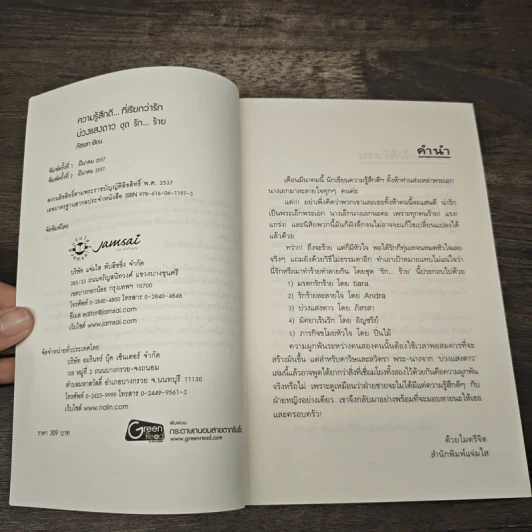 ความรู้สึกดี... ที่เรียกว่ารัก
บ่วงแสงดาว ชุด รัก... ร้าย
ภัสรสา เขียน
พิมพ์ครั้งที่ 1 มีนาคม 2557
พิมพ์ครั้งที่ 2 มีนาคม 2557
สงวนลิขสิทธิ์ตามพระราชบัญญัติลิขสิทธิ์ พ.ศ. 2537
เลขมาตรฐานสากลประจำหนังสือ ISBN 978-616-06-1197-3
จัดพิมพ์โดย
jamsai
บริษัท แจ่มใส พับลิชชิ่ง จำกัด
285/33 ถนนจรัญสนิทวงศ์ แขวงบางขุนศรี
เขตบางกอกน้อย กรุงเทพฯ 10700
โทรศัพท์ 0-2840-4800 โทรสาร 0-2840-4848
อีเมล editor@jamsai.com
เว็บไซต์ www.jamsai.com
จัดจำหน่ายทั่วประเทศโดย
บริษัท อมรินทร์ บุ๊ค เซ็นเตอร์ จำกัด
108 หมู่ที่ 2 ถนนบางกรวย-จงถนอม
ตำบลมหาสวัสดิ์ อำเภอบางกรวย จ.นนทบุรี 11130
โทรศัพท์ 0-2423-9999 โทรสาร 0-2449-9561-3
เว็บไซต์ www.naiin.com
ราคา 309 บาท
Green Read
พิมพ์บน
กระดาษถนอมสายตากรีนรีด
www.greenread.com
คำนำ
เดือนมีนาคมนี้ นักเขียนความรู้สึกดีๆ ทั้งห้าท่านส่งเหล่าพระเอก
นางเอกมาละลายใจทุกๆ คนค่ะ
แต่!!! อย่าเพิ่งคิดว่าพวกเขาและเธอทั้งห้าคนนี้จะแสนดี น่ารัก
เป็นพระเอ๊กพระเอก นางเอ๊กนางเอกนะคะ เพราะทุกคนร้าย! แรง!
แกร่ง! และนิสัยพวกนี้มันก็ฝังลึกจนไม่อาจจะแก้ไขเปลี่ยนแปลงได้
แล้วด้วย
ทว่า!!! ถึงจะร้าย แต่ก็มีหัวใจ พอได้รักก็ทุ่มเทจนหมดหัวใจเลย
จริงๆ แถมยังด้วยวิธีไม่ธรรมดาอีก ทำเอาเป้าหมายแทบไม่แน่ใจว่า
นี่รักหรือมาทำร้ายทำลายกัน โดยชุด 'รัก... ร้าย' นี้ประกอบไปด้วย
1) มรดกรักร้าย โดย tiara
2) รักร้ายละลายใจ โดย Andra
3) บ่วงแสงดาว โดย ภัสรสา
4) มัศยาเร้นรัก โดย อัญชรีย์
5) ภารกิจขโมยหัวใจ โดย ปิ่นไม้
ความผูกพันระหว่างคนสองคนนั้นต้องใช้เวลาพอสมควรที่จะ
สร้างมันขึ้น แต่สำหรับ พระ-นางจาก 'บ่วงแสงดาว'
เล่มนี้แล้วอาจพูดได้ยากว่าสิ่งที่เชื่อมโยงทั้งสองไว้ด้วยกันคือความผูกพัน
จริงหรือไม่ เพราะดูเหมือนว่าฝ่ายชายจะไม่ได้มีแต่ความรู้สึกดีๆ กับ
ฝ่ายหญิงอย่างเดียว เขาจึงกลับมาอย่างพร้อมที่จะมอบหายนะให้เธอ
และครอบครัว!
ด้วยไมตรีจิต
สำนักพิมพ์แจ่มใส